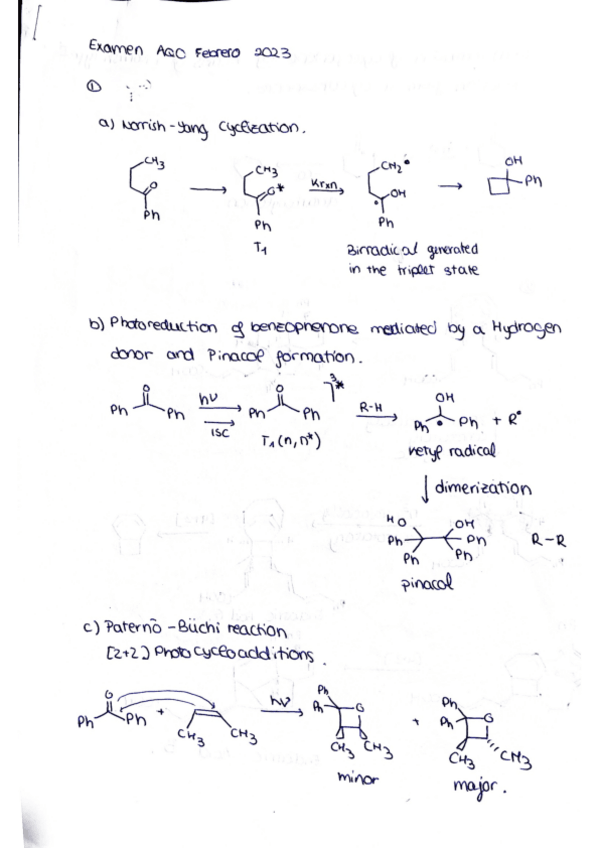 Examen AQO Febrero 2023
①
a) Norrish-Yang Cyclization.
CH3
O
Ph
CH3
O*
Ph
T1
Krxn
CH2•
OH
Ph
OH
Ph
Birradical generated
in the triplet state
b) Photoreduction of benzophenone mediated by a Hydrogen
donor and Pinacol formation.
Ph O Ph
hν
ISC
Ph O Ph
3*
T1 (n, π*)
R-H
OH
Ph Ph + R•
ketyl radical
dimerization
HO OH
Ph Ph
Ph Ph
R-R
pinacol
c) Paternò-Büchi reaction
[2+2] Photocycloadditions.
O
Ph Ph + CH3 CH3
hν
Ph O
Ph
CH3 CH3
minor
+
Ph O
Ph
CH3 CH3
major.